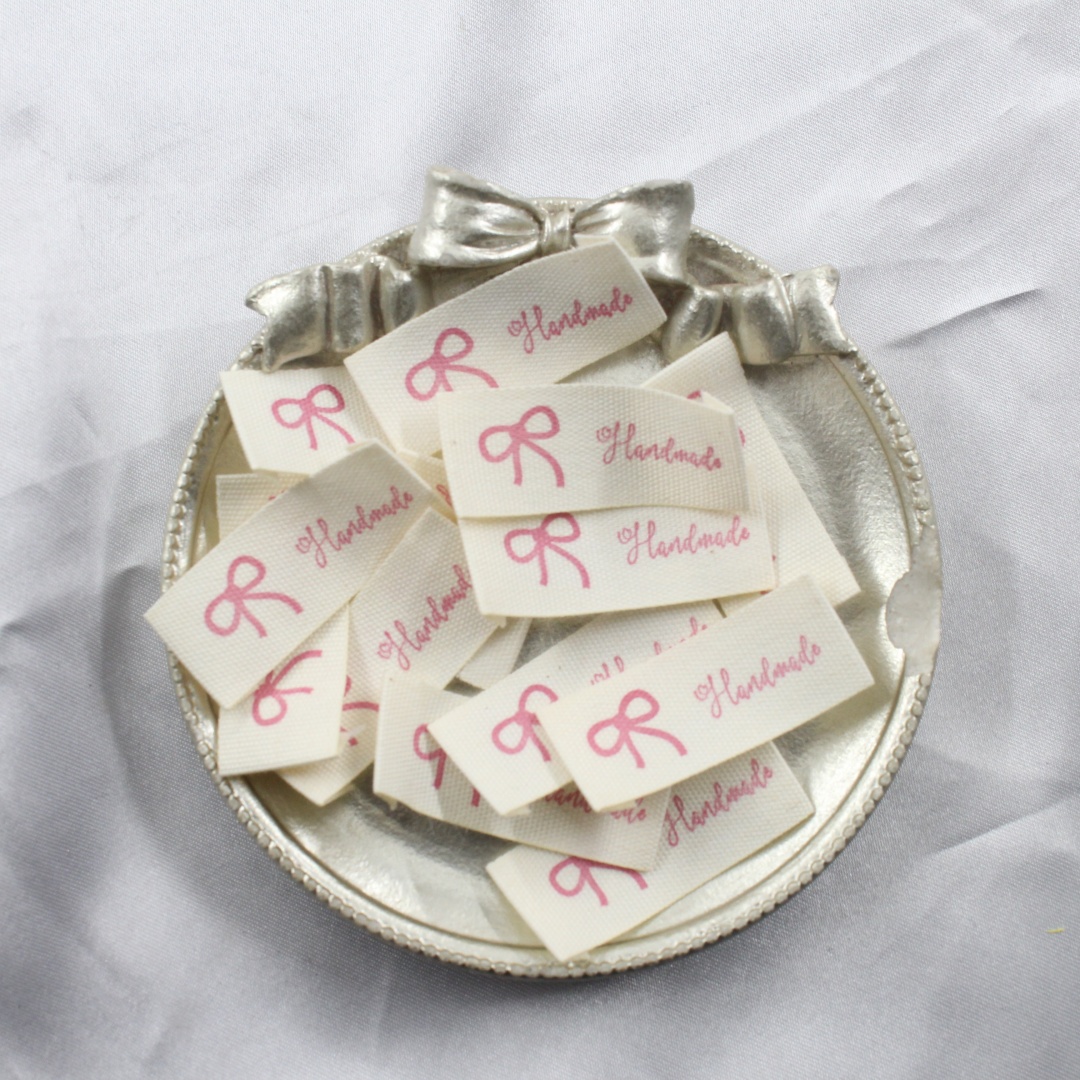 Handmade
Handmade
Handmade
Handmade
Handmade
Handmade
Handmade